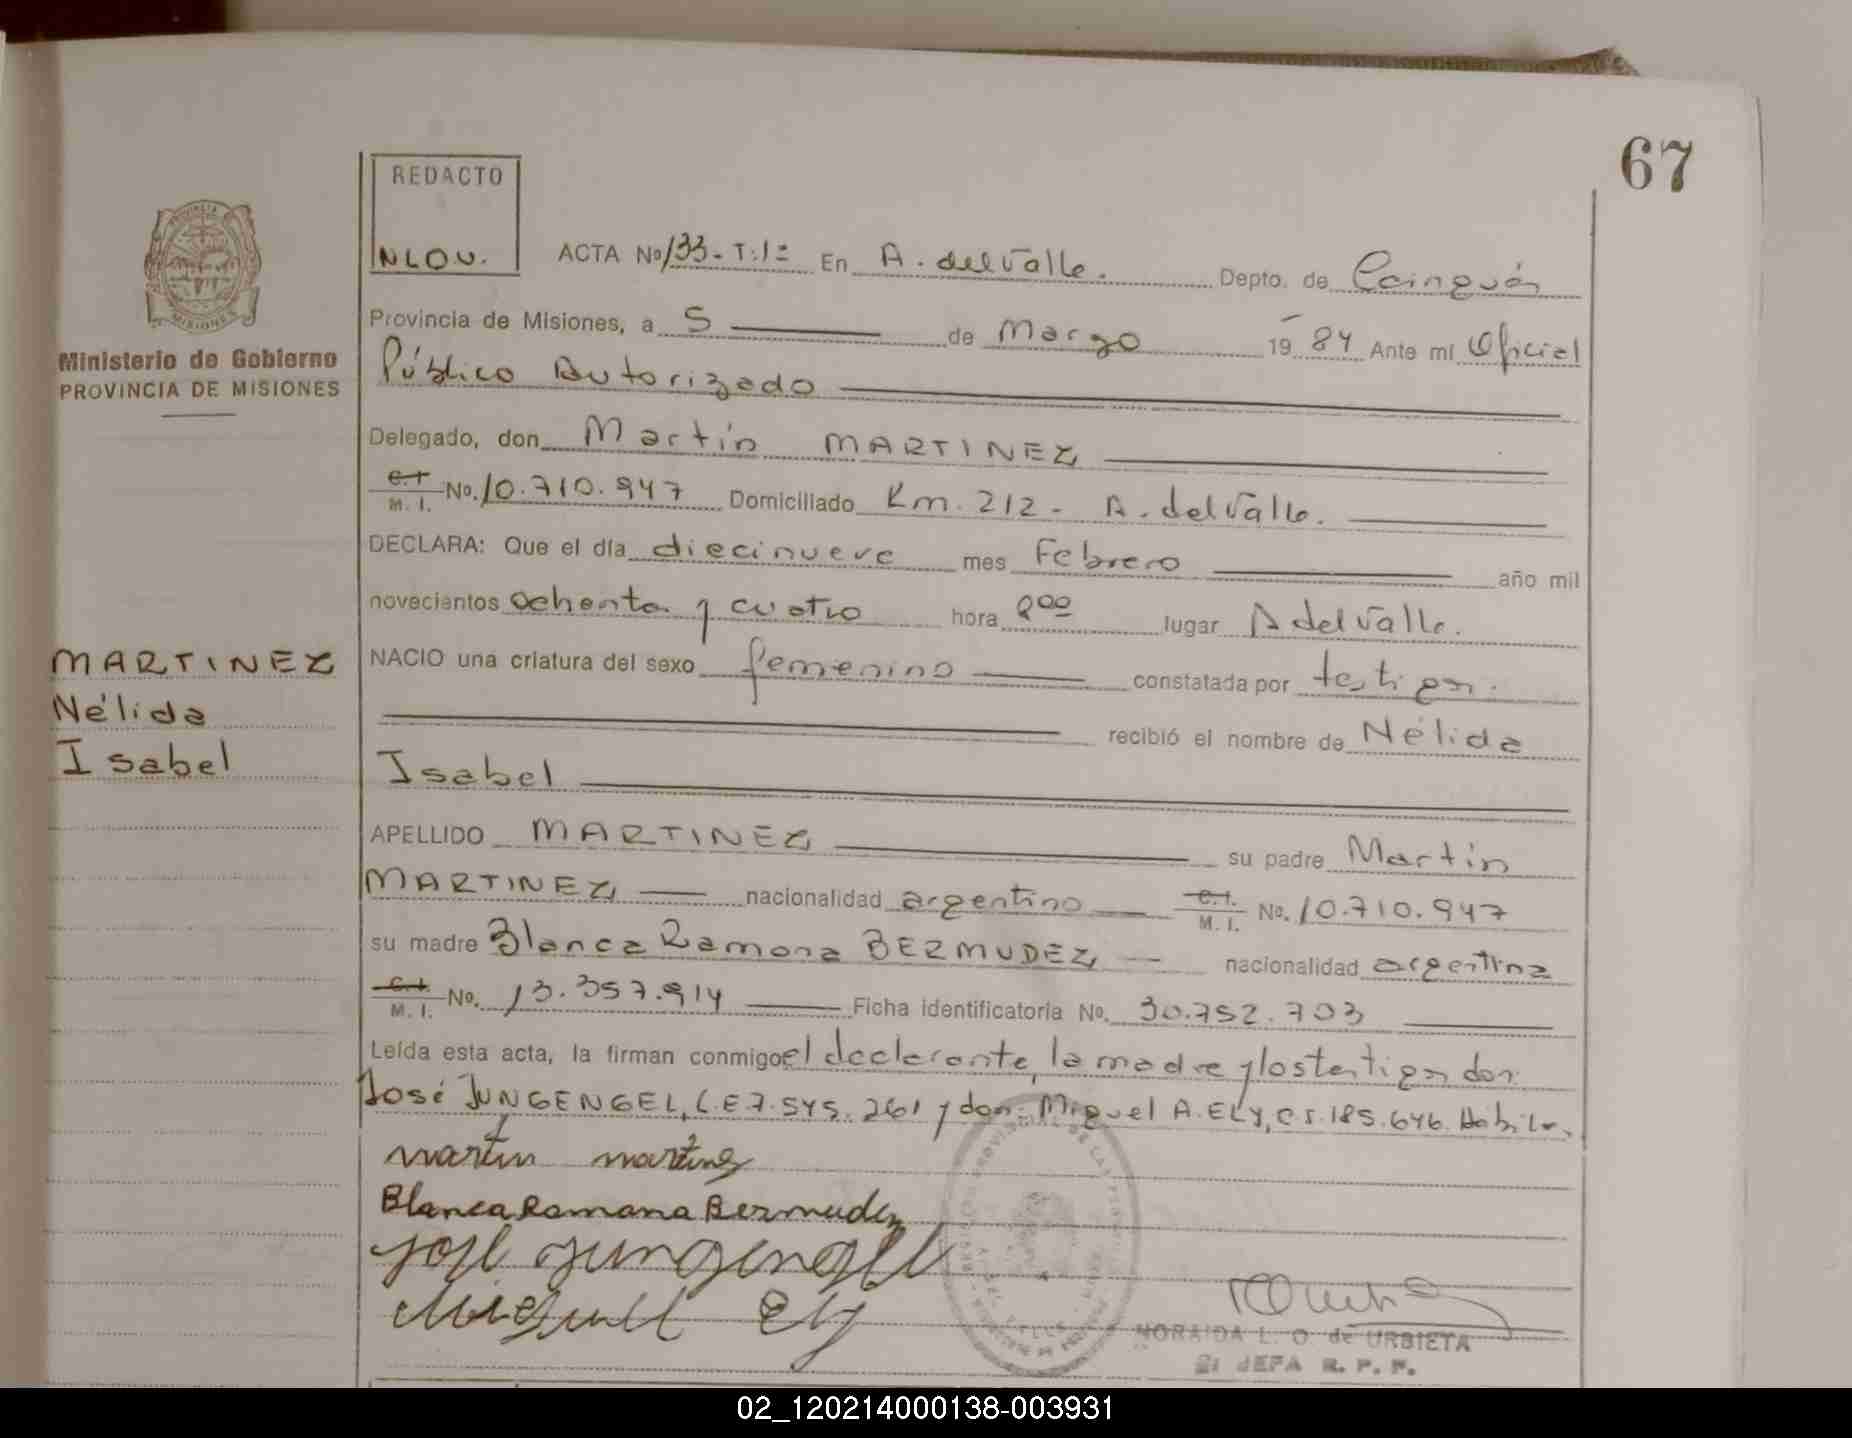 67
REDACTO
NLOU.
ACTA Nº 133-T:1º En A. del Valle. Depto. de Cainguás
Provincia de Misiones, a 5 de Marzo 1984 Ante mi Oficial
Público Autorizado
Ministerio de Gobierno
PROVINCIA DE MISIONES
Delegado, don Martín MARTINEZ
C.I. M. I. No. 10.710.947 Domiciliado Km. 212 - A. del Valle.
DECLARA: Que el día diecinueve mes Febrero año mil
novecientos ochenta y cuatro hora 8 00 lugar A del Valle.
NACIO una criatura del sexo femenino constatada por testigos.
MARTINEZ
Nélida
Isabel
recibió el nombre de Nélida
Isabel
APELLIDO MARTINEZ su padre Martín
MARTINEZ nacionalidad argentino C.I. M. I. No. 10.710.947
su madre Blanca Ramona BERMUDEZ nacionalidad argentina
C.I. M. I. No. 13.357.914 Ficha identificatoria No. 30.752.703
Leída esta acta, la firman conmigo el declarante, la madre y los testigos don:
José JUNGENGEL, C.E 7.545.261 y don: Miguel A. ELY, C.I. 185.646. Hábiles.
martin martinez
Blanca Ramona Bermudez
José Jungengel
Miguel Ely
NORAIDA L. O. de URBIETA
JEFA R. P. P.
PROVINCIA MISIONES
REGISTRO PROVINCIAL DE LAS PERSONAS
02_120214000138-003931